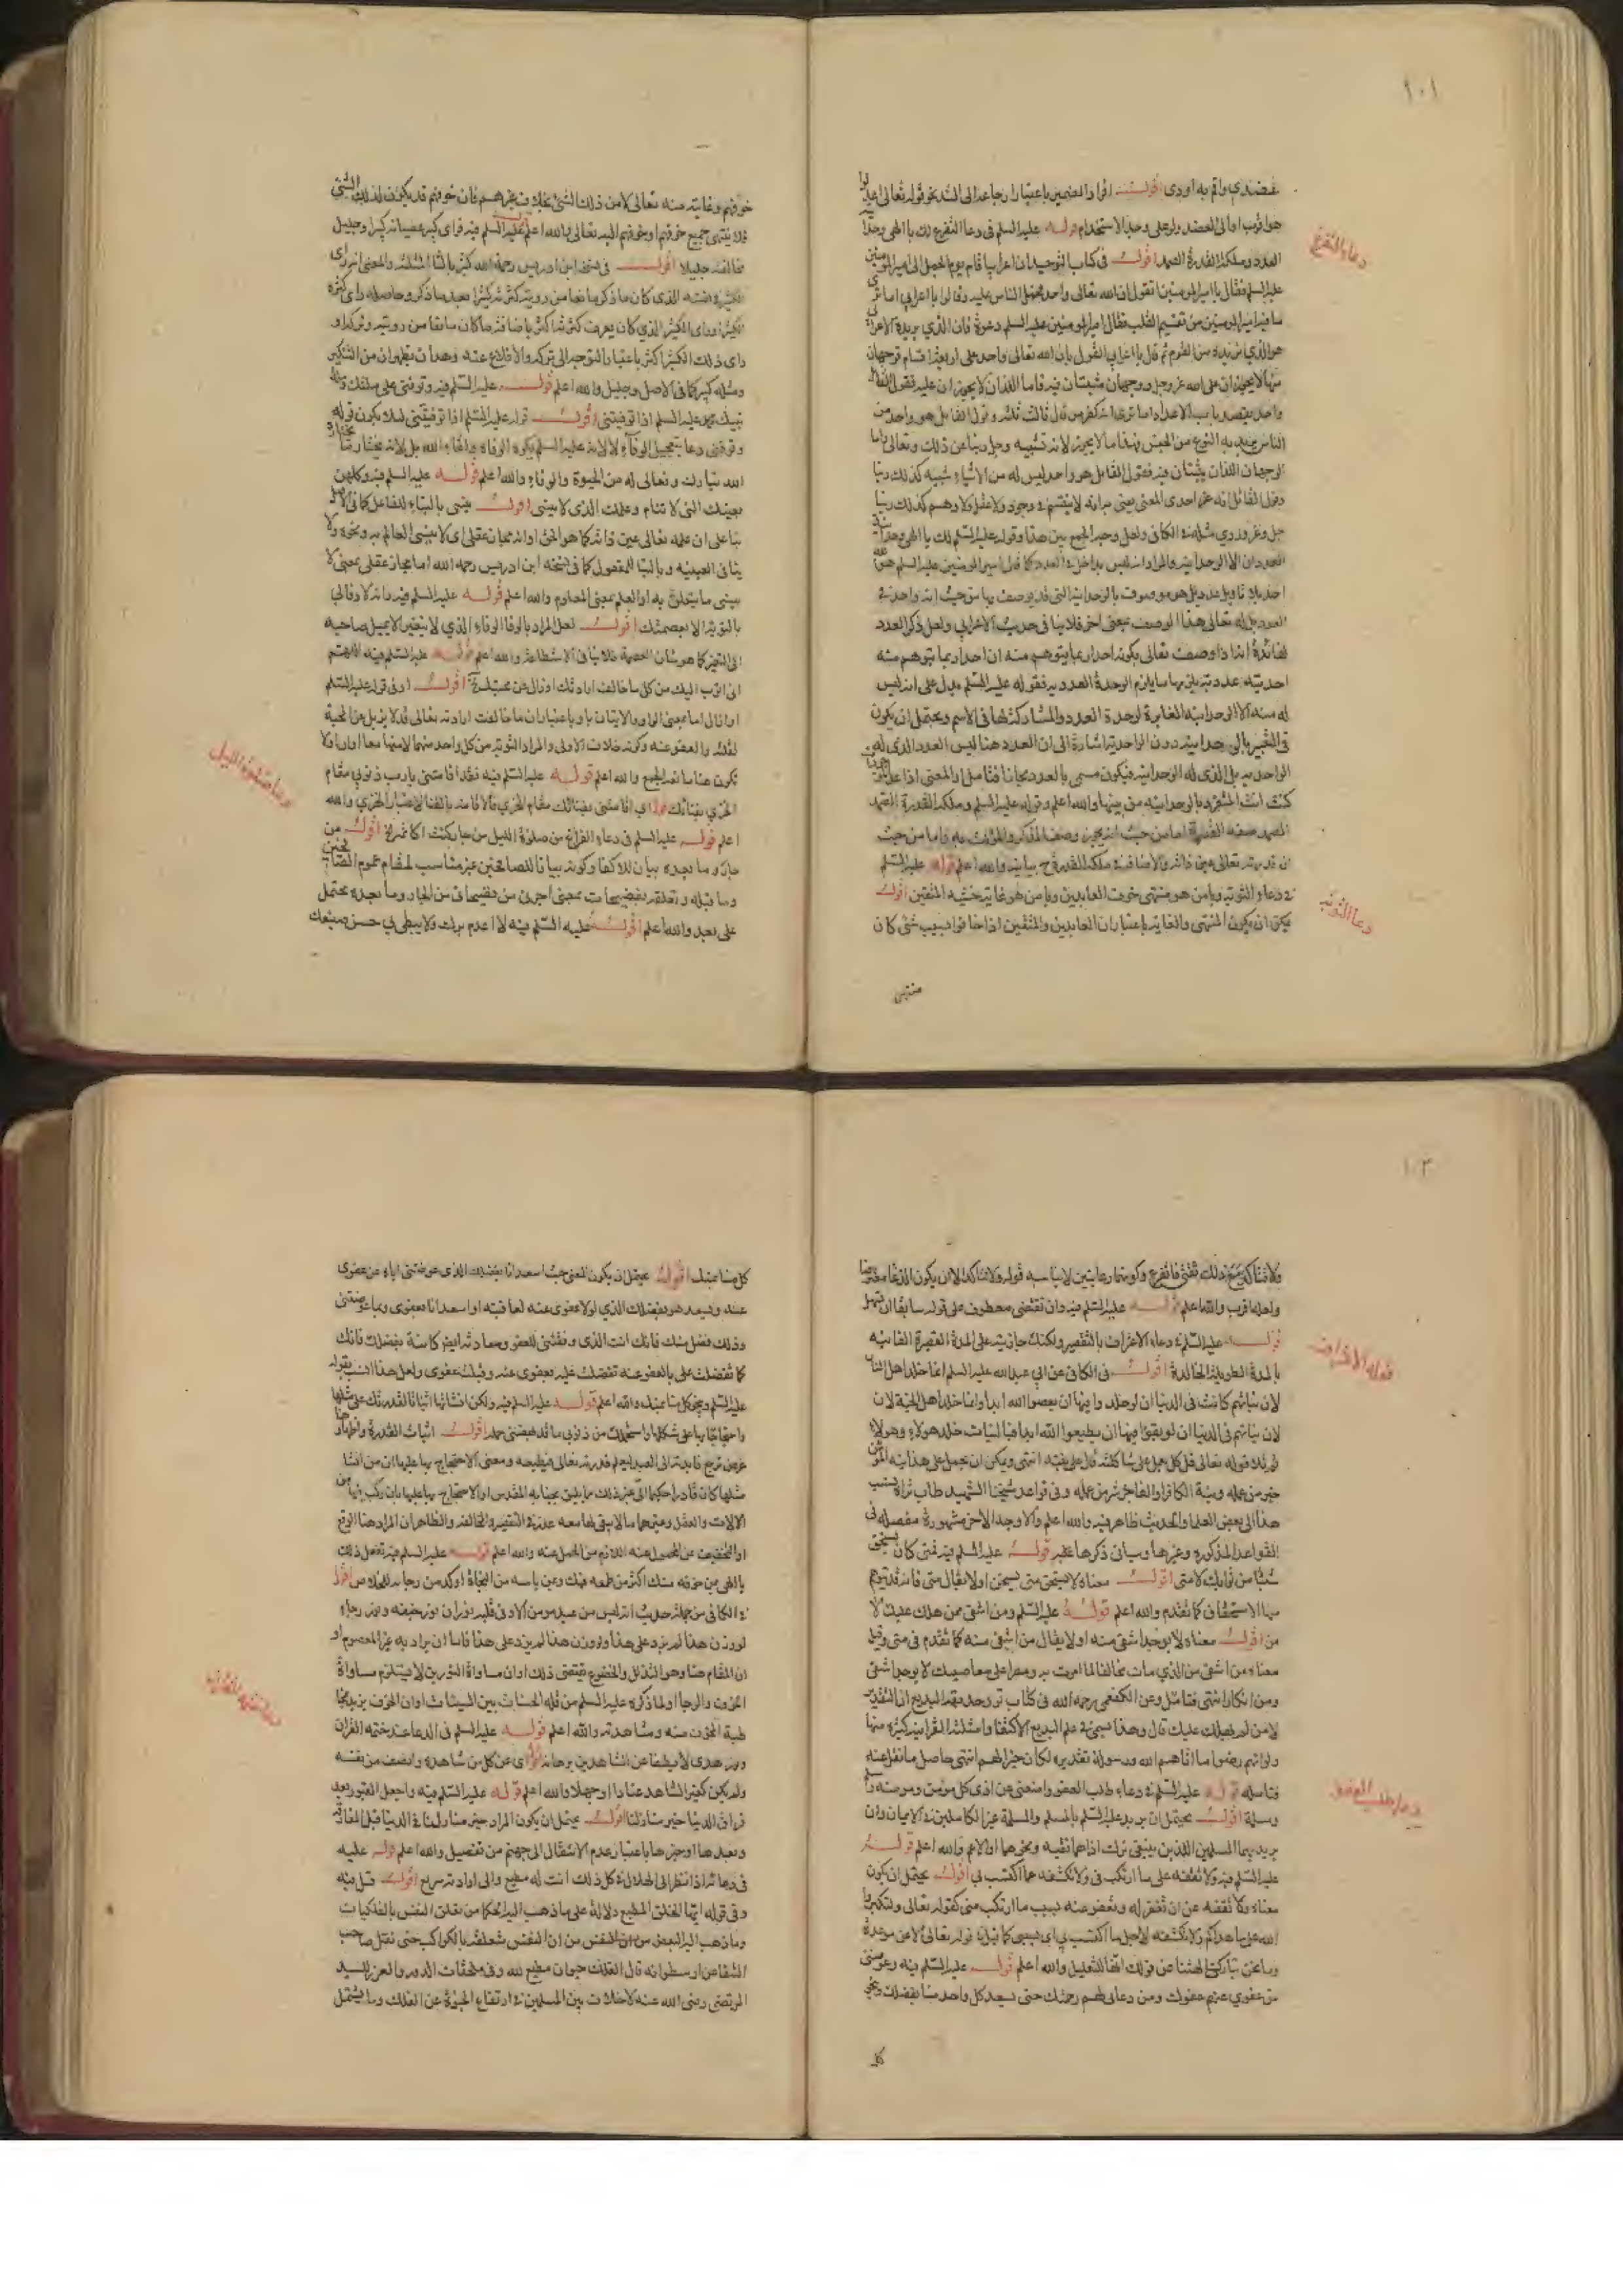 ١٠١
اقول افراد الضمير باعتبار ارجاعه الى الله نحو قوله تعالى
هو اقرب او الى العضد ولو على وجه الاستخدام قوله عليه السلم في دعاء التفزع لك يا الهي وحدانية
دعاء التفزع
العدد وملكة القدرة الصمد اقول في كتاب التوحيد ان اعرابيا قام يوم الجمل الى امير المومنين
عليه السلم فقال يا امير المومنين اتقول ان الله تعالى واحد فحمل الناس عليه وقالوا يا اعرابي اما ترى
ما فيه امير المومنين من تقسيم القلب فقال امير المومنين عليه السلم دعوه فان الذي يريده الاعرابي
هو الذي نريده من القوم ثم قال يا اعرابي القول بان الله تعالى واحد على اربعة اقسام فوجهان
منها لا يجوزان على الله عز وجل ووجهان يثبتان فيه فاما اللذان لا يجوزان عليه فقول القائل
واحد يقصد باب الاعداد اما ترى انه كفر من قال ثالث ثلثه وقول القائل هو واحد من
الناس يريد به النوع من الجنس فهذا ما لا يجوز لانه تشبيه وجل ربنا عن ذلك وتعالى واما
الوجهان اللذان يثبتان فيه فقول القائل هو واحد ليس له من الاشياء شبيه كذلك ربنا
وقول القائل انه عز احدى المعنى يعني به انه لا ينقسم في وجود ولا عقل ولا وهم كذلك ربنا
جل وعز وروي مثله في الكافي ولعل وجه الجمع بين هذا وقوله عليه السلم لك يا الهي وحدانية
العدد ان الوحدانية والمراد انه ليس بداخل في العدد كما قال امير المومنين عليه السلم هو
احد بلا تاويل عدد بل هو موصوف بالوحدانية التي قد يوصف بها من حيث انه واحد في
العدد بل له تعالى هذا الوصف بمعنى اخر فلا ينافي حديث الاعرابي ولعل ذكر العدد
لفائدة انه اذا وصف تعالى بكونه احدا ربما يتوهم منه ان احدا ربما يتوهم منه
احدية عددية يلزمها ما يلزم الوحدة العددية فقوله عليه السلم يدل على انه ليس
له منه الا الوحدانية المغايرة لوحدة العدد والمشاركة لها في الاسم ويحتمل ان يكون
في التعبير بالوحدانية دون الواحدية اشارة الى ان العدد هنا ليس العدد الذي له
الواحدية بل الذي له الوحدانية فيكون مسمى بالعدد مجازا فتامل والمعنى اذا
كنت انت المتفرد بالوحدانية من بينها والله اعلم وقوله عليه السلم وملكة القدرة الصمد
الصمد صفة القدرة اما من حيث انه يجوز وصف المذكر والمؤنث به واما من حيث
ان قدرته تعالى عين ذاته والاضافة في ملكة القدرة ح بيانية والله اعلم قوله عليه السلم
في دعاء التوبة ويا من هو منتهى خوف العابدين ويا من هو غاية خشية المتقين اقول
دعاء التوبة
يمكن ان يكون المنتهى والغاية باعتبار ان العابدين والمتقين اذا خافوا بسبب شئ كان
منتهى
خوفهم وغايته منه تعالى لا من ذلك الشئ بخلاف غيرهم فان خوفهم قد يكون لذلك الشئ
فلا ينتهي جميع خوفهم او خوفهم اليه تعالى والله اعلم قوله عليه السلم فيه فراى كبير عصيانه كبيرا وجليل
مخالفته جليلا اقول في نسخة ابن ادريس رحمه الله كثير بالثاء المثلثة والمعنى انه راى
ومثله كبير كما في الاصل وجليل والله اعلم قوله عليه السلم فيه وتوفني على ملتك وملة
نبيك محمد عليه السلم اذا توفيتني اقول قوله عليه السلم اذا توفيتني لئلا يكون قوله
وتوفني دعاء بتعجيل الوفاة لا لانه عليه السلم يكره الوفاة ولقاء الله بل لانه يختار ما يختاره
الله تبارك وتعالى له من الحيوة والوفاة والله اعلم قوله عليه السلم فيه وكلهن
بعينك التي لا تنام وعلمك الذي لا ينسى اقول ينسى بالبناء للفاعل كما في الاصل
بناء على ان علمه تعالى عين ذاته كما هو الحق او انه مجاز عقلي اي لا ينسى العالم به ونحوه ولا
ينافي العينية وبالبناء للمفعول كما في نسخة ابن ادريس رحمه الله اما مجاز عقلي بمعنى لا
ينسى ما يتعلق به او العلم بمعنى المعلوم والله اعلم قوله عليه السلم فيه وانه لا وفاء لي
بالتوبة الا بعصمتك اقول لعل المراد بالوفاء الوفاء الذي لا يتغير الا بميل صاحبه
الى التغير كما هو شان العصمة فلا ينافي الاستطاعة والله اعلم قوله عليه السلم فيه اللهم
اني اتوب اليك من كل ما خالف ارادتك او زال عن محبتك اقول او في قوله عليه السلم
او زال اما بمعنى الواو والاتيان باو باعتبار ان ما خالف ارادته تعالى قد لا يزيل عن المحبة
لقلته والعفو عنه وكونه خلاف الاولى والمراد التوبة من كل واحد منهما لا منهما معا او
تكون هنا مانعة الجمع والله اعلم قوله عليه السلم فيه فقد اقامتني يا رب ذنوبي مقام
الخزي بفنائك اي اقامتني بفنائك مقام الخزي فالاقامة بالفناء لاعتبار الخزي والله
اعلم قوله عليه السلم في دعاء الفراغ من صلوة الليل من جار كنت اكاتمه اقول من
دعاء صلوة الليل
جار وما بعده بيان للاكفاء وكونه بيانا للصالحين غير مناسب لمقام عموم الصالحين
وما قبله وتعلقه بفضيحات بمعنى اجرني من فضيحاتي من الجار وما بعده محتمل
على بعد والله اعلم اقول عليه السلم فيه لا اعدم برك ولا يبطي بي حسن صنيعك
١٠٢
ولا تتاكد مع ذلك ثقتي فاتفرغ وكونهما رعايتين لا يناسبه قوله ولا تتاكد الا ان يكون
ولعله اقرب والله اعلم قوله عليه السلم فيه وان تقتضي معطوف على قوله سابقا ان تسهل
قوله عليه السلم في دعاء الاعتراف بالتقصير ولكنك جازيته على المدة القصيرة الفانية
دعاء الاعتراف
بالمدة الطويلة الخالدة اقول في الكافي عن ابي عبد الله عليه السلم انما خلد اهل النار
لان نياتهم كانت في الدنيا ان لو خلدوا فيها ان يعصوا الله ابدا وانما خلد اهل الجنة لان
لان نياتهم في الدنيا ان لو بقوا فيها ان يطيعوا الله ابدا فبالنيات خلد هولاء وهولاء
ثم تلا قوله تعالى قل كل يعمل على شاكلته قال على نيته انتهى ويمكن ان يحمل على هذا نية المؤمن
خير من عمله ونية الكافر او الفاجر شر من عمله وفي قواعد شيخنا الشهيد طاب ثراه نسب
هذا الى بعض العلماء والحديث ظاهر فيه والله اعلم والاوجه الاخر مشهورة مفصلة في
القواعد المذكورة وغيرها وسياتي ذكرها عليه قوله عليه السلم فيه فمتى كان يستحق
شيئا من ثوابك لا متى اقول معناه لا يستحق متى يستحق او لا يقال متى فانه قد يتوهم
منها الاستحقاق كما تقدم والله اعلم قوله عليه السلم ومن اشقى ممن هلك عليك لا
من اقول معناه لا يوجد اشقى منه او لا يقال من اشقى منه كما تقدم في متى وقيل
معناه من اشقى من الذي مات مخالفا لما امرت به ومصرا على معاصيك لا يوجد اشقى
ومن انكار انتهى فتامل وعن الكفعمي رحمه الله في كتاب نور حدقة البديع ان التقدير
لا من لم يهلك عليك قال وهذا يسمى في علم البديع الاكتفاء وامثلته القرانية كثيرة منها
ولو انهم رضوا ما اتاهم الله ورسوله تقديره لكان خيرا لهم انتهى حاصل ما نقل عنه
فتامله قوله عليه السلم في دعاء طلب العفو وامنعني عن اذى كل مؤمن ومؤمنة ومسلم
دعاء طلب العفو
ومسلمة اقول يحتمل ان يريد عليه السلم بالمسلم والمسلمة غير الكاملين في الايمان وان
يريد بهما المسلمين اللذين ينبغي ترك اذاهما تقية ونحوها او الاعم والله اعلم قوله
عليه السلم فيه ولا تقفه على ما ارتكب في ولا تكشفه عما اكتسب بي اقول يحتمل ان يكون
معناه ولا تقفه عن ان تغفر له وتعفو عنه بسبب ما ارتكب مني كقوله تعالى ولتكبروا
الله على ما هداكم ولا تكشفه لاجل ما اكتسب بي اي بسببي كما قيل في قوله تعالى الا عن موعدة
وما نحن بتاركي الهتنا عن قولك انها للتعليل والله اعلم قوله عليه السلم فيه وعوضني
من عفوي عنهم عفوك ومن دعائي لهم رحمتك حتى يسعد كل واحد منا بفضلك وينجو
كل
كل منا بمنك اقول يحتمل ان يكون المعنى حيث اسعد انا بفضلك الذي عوضتني اياه عن عفوي
عنه ويسعد هو بفضلك الذي لولا عفوي عنه لعاقبته او اسعد انا بعفوي وبما عوضتني
وذلك فضل منك فانك انت الذي وفقتني للعفو وسعادته ايضا كائنة بفضلك فانك
كما تفضلت علي بالعفو عنه تفضلت عليه بعفوي عنه وقبلت عفوي ولعل هذا انسب بقوله
عليه السلم وينجو كل منا بمنك والله اعلم قوله عليه السلم فيه ولكن انشاتها اثباتا لقدرتك على مثلها
واحتجاجا بها على شكلها واستحملك من ذنوبي ما قد بهضني حمله اقول اثبات القدرة واظهار
مثلها كان قادرا حكيما الى غير ذلك مما يليق بجنابه المقدس او الاحتجاج بها عليها بان ركب فيها من
الالات والعقل وغيرهما ما لا يبقى لها معه عذر في التقصير والمخالفة والظاهر ان المراد هنا الرفع
او التخفيف عن المحمول عنه اللازم من الحمل عنه والله اعلم قوله عليه السلم فيه تفعل ذلك
يا الهي بمن خوفه منك اكثر من طمعه فيك وبمن ياسه من النجاة اوكد من رجائه للخلاص اقول
في الكافي من جملة حديث انه ليس من عبد مومن الا وفي قلبه نوران نور خيفة ونور رجاء
لو وزن هذا لم يزد على هذا ولو وزن هذا لم يزد على هذا فاما ان يراد به غير المعصوم او
ان المقام هنا وهو التذلل والخضوع يقتضي ذلك او ان مساواة النورين لا يستلزم مساواة
الخوف والرجا او لما ذكره عليه السلم من قلة الحسنات بين السيئات او ان الخوف يزيد بحسب
هيبة المخوف منه ومشاهدته والله اعلم قوله عليه السلم في الدعا عند ختمه القران
دعاء ختمه القران
ونور هدى لا يطفا عن الشاهدين برهانه اقول اي عن كل من شاهده وانصف من نفسه
ولم يكن كغير الشاهد عنادا او جهلا والله اعلم قوله عليه السلم فيه واجعل القبور بعد
فراق الدنيا خير منازلنا اقول يحتمل ان يكون المراد خير منازلنا في الدنيا قبل المفارقة
وبعدها او خيرها باعتبار عدم الانتقال الى جهنم من تفصيل والله اعلم قوله عليه
في دعائه اذا نظر الى الهلال في كل ذلك انت له مطيع والى ارادته سريع اقول قيل فيه
وفي قوله ايها الخلق المطيع دلالة على ما ذهب اليه الحكما من تعلق النفس بالفلكيات
وما ذهب اليه البعض من ان النفس متعلقة بالكواكب حتى نقل صاحب
الشفا عن ارسطو انه قال الفلك حيوان مطيع لله وفي ملحقات الدرر والغرر للسيد
المرتضى رضي الله عنه لا خلاف بين المسلمين في ارتفاع الحيوة عن الفلك وما يشتمل